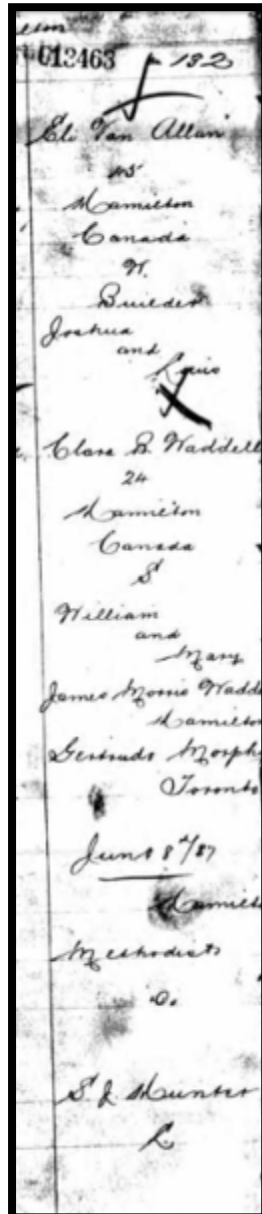 013463 - 132
Eli Van Allan
45
Hamilton
Canada
W.
Builder
Joshua
and
Clara B. Waddell
24
Hamilton
Canada
S
William
and
Mary
James Morris Wadde
Hamilton
Gertrude Morph
Toronto
June 8th/87
Hamilto
Methodists
Do
S. J. Hunter
L